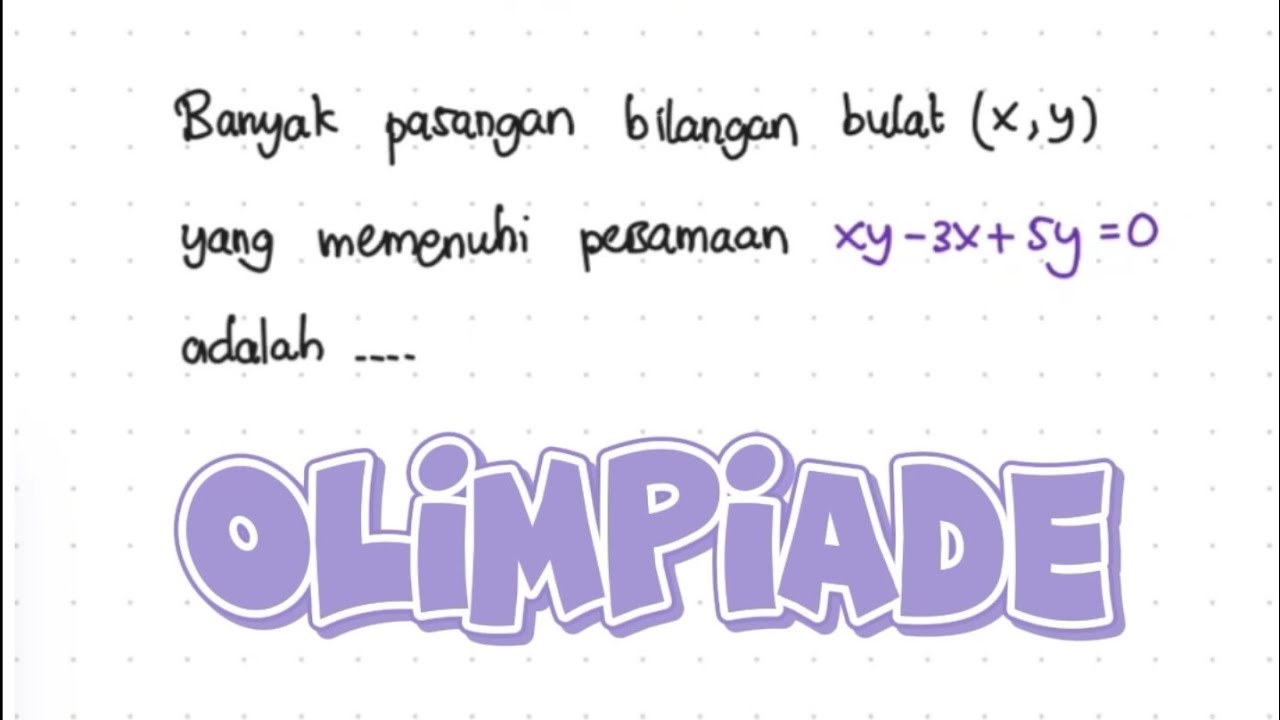 Banyak pasangan bilangan bulat (x,y)
yang memenuhi persamaan xy-3x+5y=0
adalah ....
OLiMPiADE